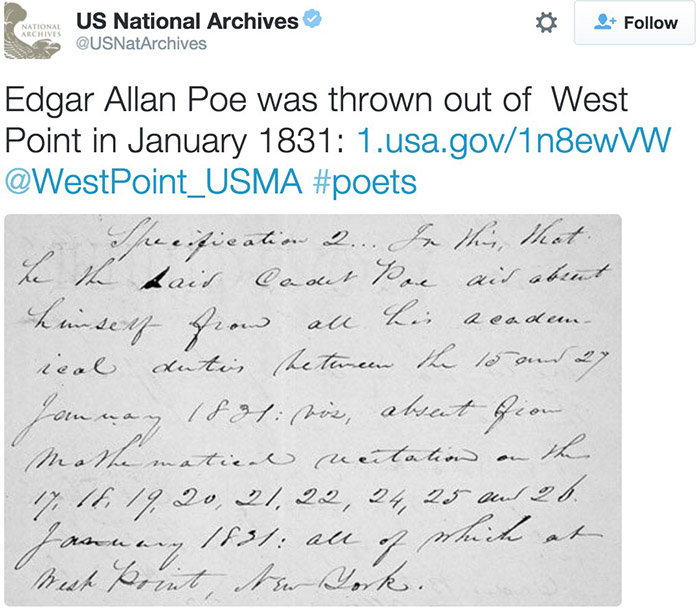 NATIONAL
ARCHIVES
US National Archives
@USNatArchives
Follow
Edgar Allan Poe was thrown out of West
Point in January 1831: 1.usa.gov/1n8ewVW
@WestPoint_USMA #poets
Specification 2... In this, that
he the said Cadet Poe did absent
himself from all his academ-
ical duties between the 15 and 27
January 1831: viz, absent from
Mathematical recitation on the
17, 18, 19, 20, 21, 22, 24, 25 and 26.
January 1831: all of which at
West Point, New York.